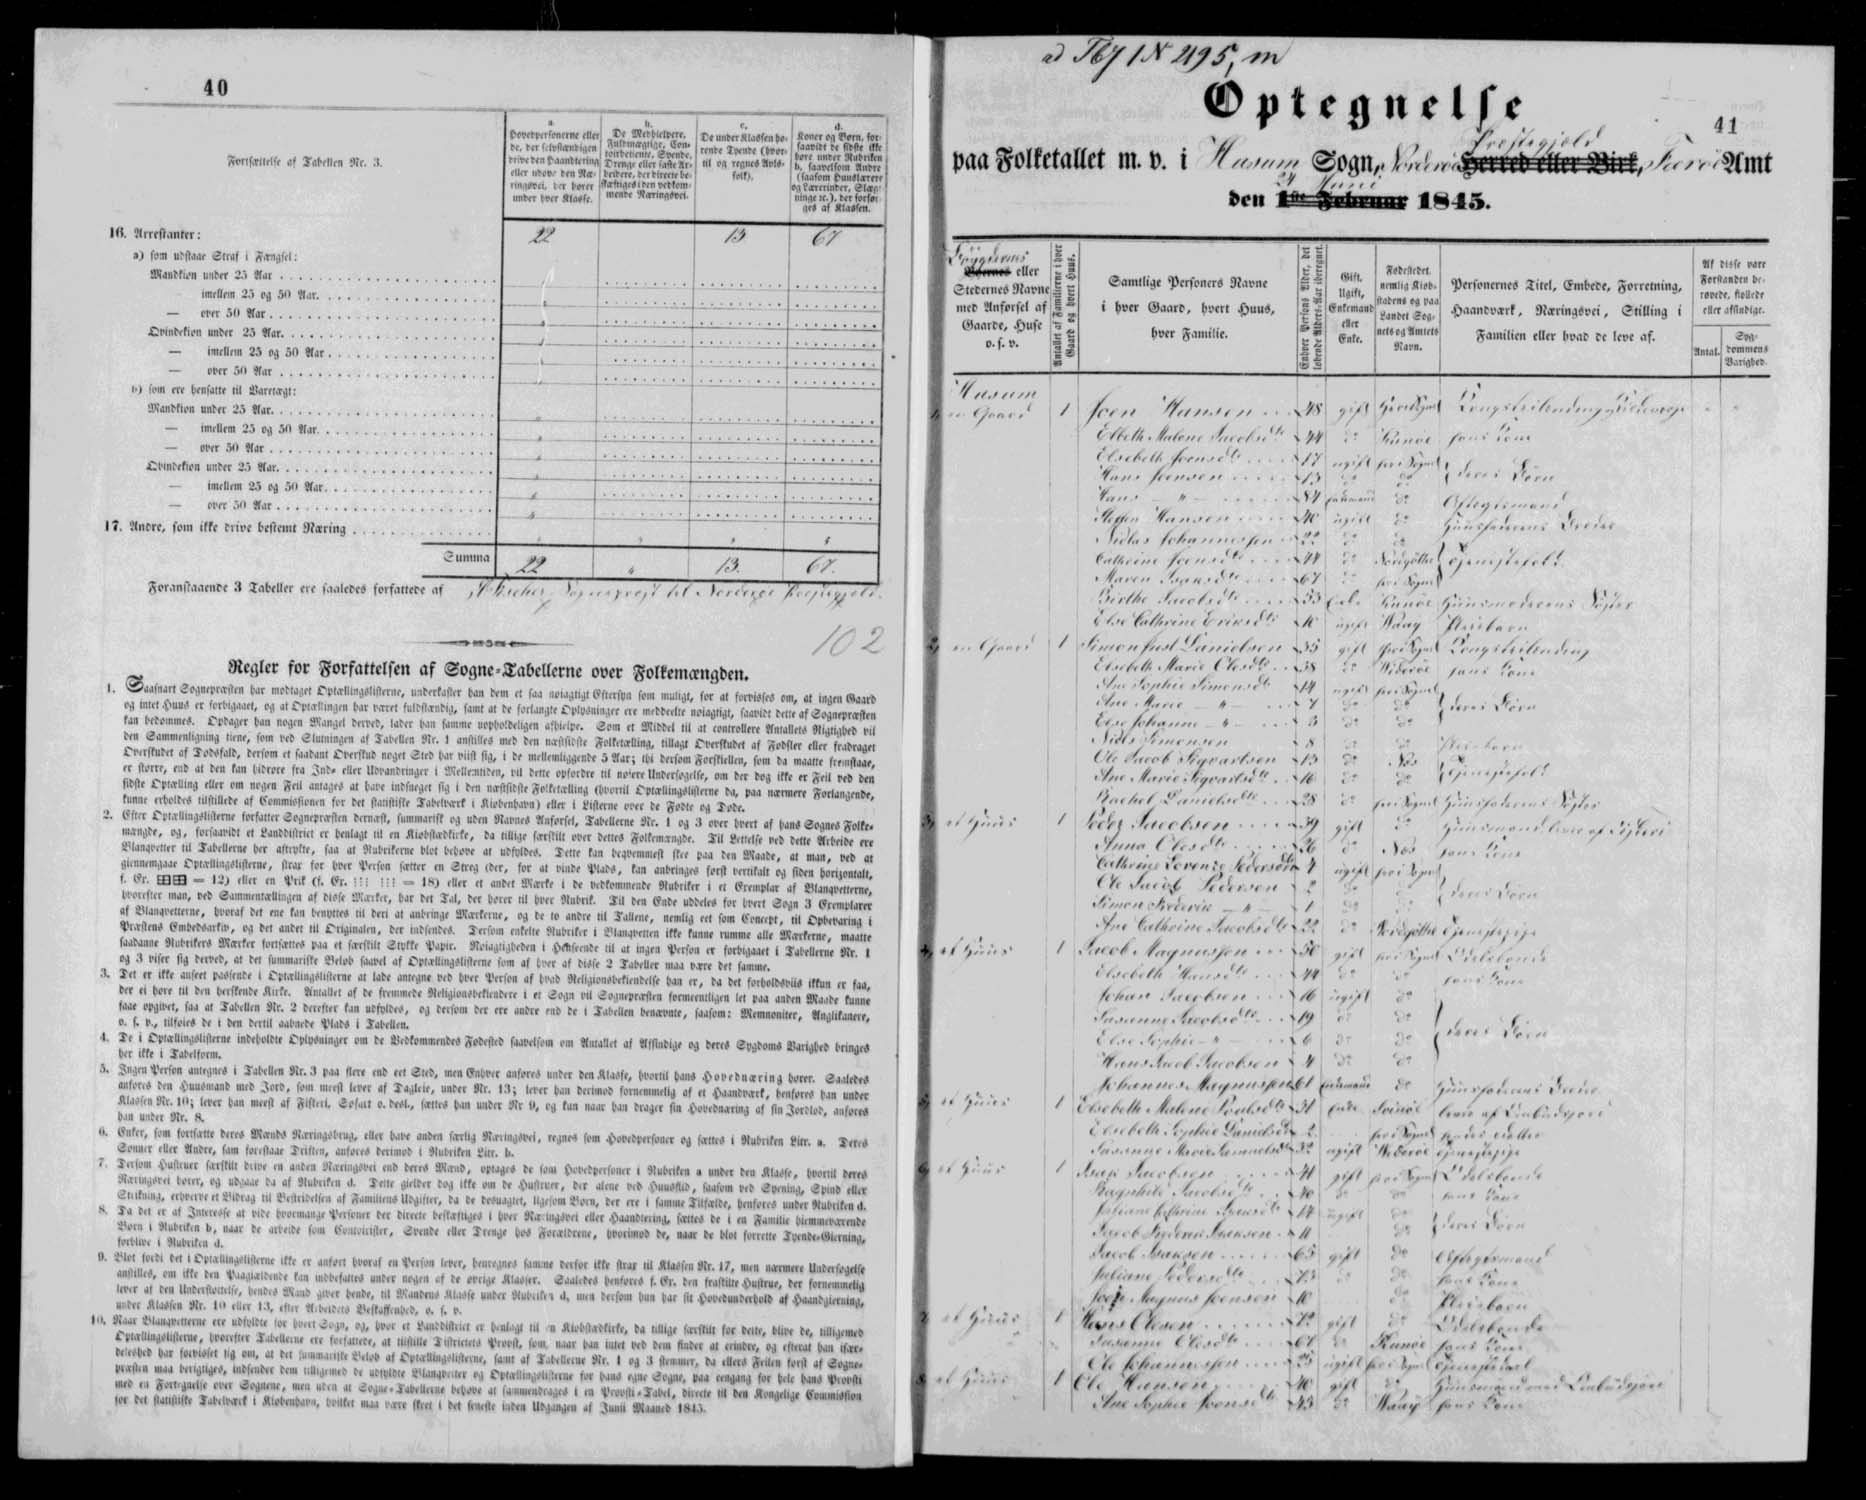 40
Fortsættelse af Tabellen Nr. 3.
a. Hovedpersonerne eller de, der selvstændigen drive den Haandtering eller udøve den Næringsvei, der hører under hver Klasse.
b. De Medhielpere, Fuldmægtige, Contoirbetiente, Svende, Drenge eller faste Arbeidere, der directe beskæftiges i den vedkommende Næringsvei.
c. De under Klassen hørende Tyende (hvortil og regnes Avlsfolk).
d. Koner og Børn, forsaavidt de sidste ikke høre under Rubriken b, saavelsom Andre (saasom Huuslærere og Lærerinder, Slægtninge ɾc.), der forsørges af Klassen.
16. Arrestanter: 22 13 67
a) som udstaae Straf i Fængsel:
Mandkiøn under 25 Aar
imellem 25 og 50 Aar
— over 50 Aar
Qvindekiøn under 25 Aar
— imellem 25 og 50 Aar
— over 50 Aar
b) som ere hensatte til Varetægt:
Mandkiøn under 25 Aar
— imellem 25 og 50 Aar
— over 50 Aar
Qvindekiøn under 25 Aar
— imellem 25 og 50 Aar
— over 50 Aar
17. Andre, som ikke drive bestemt Næring
Summa 22 " 13. 67.
Foranstaaende 3 Tabeller ere saaledes forfattede af Sognepræst til Norderøe Præstegjeld.
102
Regler for Forfattelsen af Sogne-Tabellerne over Folkemængden.
1. Saasnart Sognepræsten har modtaget Optællingslisterne, underkaster han dem et saa nøiagtigt Eftersyn som muligt, for at forvisses om, at ingen Gaard
og intet Huus er forbigaaet, og at Optællingen har været fuldstændig, samt at de forlangte Oplysninger ere meddeelte nøiagtigt, saavidt dette af Sognepræsten
kan bedømmes. Opdager han nogen Mangel derved, lader han samme uopholdeligen afhielpe. Som et Middel til at controllere Antallets Rigtighed vil
den Sammenligning tiene, som ved Slutningen af Tabellen Nr. 1 anstilles med den næstsidste Folketælling, tillagt Overskudet af Fødsler eller fradraget
Overskudet af Dødsfald, dersom et saadant Overskud noget Sted har viist sig, i de mellemliggende 5 Aar; thi dersom Forskiellen, som da maatte fremstaae,
er større, end at den kan hidrøre fra Ind- eller Udvandringer i Mellemtiden, vil dette opfordre til nøiere Undersøgelse, om der dog ikke er Feil ved den
sidste Optælling eller om nogen Feil antages at have indsneget sig i den næstsidste Folketælling (hvortil Optællingslisterne da, paa nærmere Forlangende,
kunne erholdes tilstillede af Commissionen for det statistiske Tabelværk i Kiøbenhavn) eller i Listerne over de Fødte og Døde.
2. Efter Optællingslisterne forfatter Sognepræsten dernæst, summarisk og uden Navnes Anførsel, Tabellerne Nr. 1 og 3 over hvert af hans Sognes Folke-
mængde, og, forsaavidt et Landdistrict er henlagt til en Kiøbstadkirke, da tillige særskilt over dettes Folkemængde. Til Lettelse ved dette Arbeide ere
Blanqvetter til Tabellerne her aftrykte, saa at Rubrikerne blot behøve at udfyldes. Dette kan beqvemmest skee paa den Maade, at man, ved at
giennemgaae Optællingslisterne, strax for hver Person sætter en Streg (der, for at vinde Plads, kan anbringes først vertikalt og siden horizontalt,
f. Ex. ⊞⊞ = 12) eller en Prik (f. Ex. ⋮⋮⋮ ⋮⋮⋮ = 18) eller et andet Mærke i de vedkommende Rubriker i et Exemplar af Blanqvetterne,
hvorefter man, ved Sammentællingen af disse Mærker, har det Tal, der hører til hver Rubrik. Til den Ende uddeles for hvert Sogn 3 Exemplarer
af Blanqvetterne, hvoraf det ene kan benyttes til deri at anbringe Mærkerne, og de to andre til Tallene, nemlig eet som Concept, til Opbevaring i
Præstens Embedsarkiv, og det andet til Originalen, der indsendes. Dersom enkelte Rubriker i Blanqvetten ikke kunne rumme alle Mærkerne, maatte
saadanne Rubrikers Mærker fortsættes paa et særskilt Stykke Papir. Nøiagtigheden i Henseende til at ingen Person er forbigaaet i Tabellerne Nr. 1
og 3 viser sig derved, at det summariske Beløb saavel af Optællingslisterne som af hver af disse 2 Tabeller maa være det samme.
3. Det er ikke anseet passende i Optællingslisterne at lade antegne ved hver Person af hvad Religionsbekiendelse han er, da det forholdsviis ikkun er faa,
der ei høre til den herskende Kirke. Antallet af de fremmede Religionsbekiendere i et Sogn vil Sognepræsten formeentligen let paa anden Maade kunne
faae opgivet, saa at Tabellen Nr. 2 derefter kan udfyldes, og dersom der ere andre end de i Tabellen benævnte, saasom: Memnoniter, Anglikanere,
o. s. v., tilføies de i den dertil aabnede Plads i Tabellen.
4. De i Optællingslisterne indeholdte Oplysninger om de Vedkommendes Fødested saavelsom om Antallet af Afsindige og deres Sygdoms Varighed bringes
her ikke i Tabelform.
5. Ingen Person antegnes i Tabellen Nr. 3 paa flere end eet Sted, men Enhver anføres under den Klasse, hvortil hans Hovednæring hører. Saaledes
anføres den Huusmand med Jord, som meest lever af Dagleie, under Nr. 13; lever han derimod fornemmelig af et Haandværk, henføres han under
Klassen Nr. 10; lever han meest af Fiskeri, Søfart o. desl., sættes han under Nr 9, og kun naar han drager sin Hovednæring af sin Jordlod, anføres
han under Nr. 8.
6. Enker, som fortsætte deres Mænds Næringsbrug, eller have anden særlig Næringsvei, regnes som Hovedpersoner og sættes i Rubriken Litr. a. Deres
Sønner eller Andre, som forestaae Driften, anføres derimod i Rubriken Litr. b.
7. Dersom Hustruer særskilt drive en anden Næringsvei end deres Mænd, optages de som Hovedpersoner i Rubriken a under den Klasse, hvortil deres
Næringsvei hører, og udgaae da af Rubriken d. Dette gielder dog ikke om de Hustruer, der alene ved Huusflid, saasom ved Syening, Spind eller
Strikning, erhverve et Bidrag til Bestridelsen af Familiens Udgifter, da de desuagtet, ligesom Børn, der ere i samme Tilfælde, henføres under Rubriken d.
8. Da det er af Interesse at vide hvormange Personer der directe beskæftiges i hver Næringsvei eller Haandtering, sættes de i en Familie hiemmeværende
Børn i Rubriken b, naar de arbeide som Contoirister, Svende eller Drenge hos Forældrene, hvorimod de, naar de blot forrette Tyende-Gierning,
forblive i Rubriken d.
9. Blot fordi det i Optællingslisterne ikke er anført hvoraf en Person lever, henregnes samme derfor ikke strax til Klassen Nr. 17, men nærmere Undersøgelse
anstilles, om ikke den Paagiældende kan indbefattes under nogen af de øvrige Klasser. Saaledes henføres f. Ex. den fraskilte Hustrue, der fornemmelig
lever af den Understøttelse, hendes Mand giver hende, til Mandens Klasse under Rubriken d, men dersom hun har sit Hovedunderhold af Haandgierning,
under Klassen Nr. 10 eller 13, efter Arbeidets Beskaffenhed, o. s. v.
10. Naar Blanqvetterne ere udfyldte for hvert Sogn, og, hvor et Landdistrict er henlagt til en Kiøbstadkirke, da tillige særskilt for dette, blive de, tilligemed
Optællingslisterne, hvorefter Tabellerne ere forfattede, at tilstille Districtets Provst, som, naar han intet ved dem finder at erindre, og efterat han især-
deleshed har forvisset sig om, at det summariske Beløb af Optællingslisterne, samt af Tabellerne Nr. 1 og 3 stemmer, da ellers Feilen først af Sogne-
præsten maa berigtiges, indsender dem tilligemed de udfyldte Blanqvetter og Optællingslisterne for hans egne Sogne, paa eengang for hele hans Provsti
med en Fortegnelse over Sognene, men uden at Sogne-Tabellerne behøve at sammendrages i en Provsti-Tabel, directe til den Kongelige Commission
for det statistiske Tabelværk i Kiøbenhavn, hvilket maa være skeet i det seneste inden Udgangen af Junii Maaned 1845.
ad Tbf 1 N 495, m
Optegnelse
41
Præstegjeld
paa Folketallet m. v. i Husum Sogn, Norderøe Herred eller Birk, Færøe Amt
24 Juni
den 1ste Februar 1845.
Bøygdernes
Byernes eller Stedernes Navne med Anførsel af Gaarde, Huse o. s. v.
Antallet af Familierne i hver Gaard og hvert Huus.
Samtlige Personers Navne i hver Gaard, hvert Huus, hver Familie.
Enhver Persons Alder, det løbende Alders-Aar iberegnet.
Gift, Ugift, Enkemand eller Enke.
Fødestedet, nemlig Kiøbstadens og paa Landet Sognets og Amtets Navn.
Personernes Titel, Embede, Forretning, Haandværk, Næringsvei, Stilling i Familien eller hvad de leve af.
Af disse vare Forstanden berøvede, fiollede eller afsindige.
Antal. Sygdommens Varighed.
Husum
1, en Gaard 1 Joen Hansen 48 gift her i Sognet Kongsbilending
Elbeth Malene Jacobsdtr 44 do Kunøe hans Kone
Elsebeth Joensdtr 17 ugift her i Sognet
Hans Joensen 13 do do deres Børn
Hans — " — 84 Enkemand do Aftægtsmand
Steffen Hansen 40 ugift do Huusfaderens Broder
Niclas Johannessen 22 do do
Cathrine Joensdtr 44 do Nordgøthe Tjenestefolk
Maren Isaksdtr 67 do her i Sognet
Birthe Jacobsdtr 53 Enke Kunøe Huusmoderens Søster
Else Cathrine Eriksdtr 10 ugift Waag Pleiebarn
2, en Gaard 1 Simon Danielsen 35 gift her i Sognet Kongsbilending
Elsebeth Marie Olesdtr 38 do Wideröe hans Kone
Ane Sophie Simonsdtr 14 ugift her i Sognet
Ane Marie — " — 7 do do deres Børn
Else Johanne — " — 3 do do
Niels Simonsen 8 do do Pleiebarn
Ole Jacob Sigvartsen 13 do Næs
Ane Marie Sigvartsdtr 16 do do Tjenestefolk
Rachel Danielsdtr 28 do her i Sognet Huusfaderens Søster
3, et Huus 1 Peder Jacobsen 39 gift do Huusmand lever af Fiskeri
Anna Olesdtr 26 do Næs hans Kone
Cathrine Lovense Pedersdtr 4 ugift her i Sognet
Ole Jacob Pedersen 2 do do deres Børn
Simon Frederik — " — 1 do do
Ane Cathrine Jacobsdtr 22 do Nordgøthe Tjenestepige
4, et Huus 1 Jacob Magnussen 50 gift her i Sognet Odelsbonde
Elsebeth Hansdtr 44 do do hans Kone
Johan Jacobsen 16 ugift do
Susanne Jacobsdtr 19 do do deres Børn
Else Sophie — " — 6 do do
Hans Jacob Jacobsen 4 do do
Johannes Magnussen 61 Enkemand do Huusfaderens Broder
5, et Huus 1 Elsebeth Malene Poulsdtr 31 Enke Svinøe
Elsebeth Sophie Danielsdtr 2 her i Sognet hendes Datter
Susanne Marie Samuelsdtr 32 ugift Wideröe Tjenestepige
6, et Huus 1 Isak Jacobsen 41 gift her i Sognet Odelsbonde
Ragnhild Jacobsdtr 40 do do hans Kone
Juliane Cathrine Isaksdtr 14 ugift do
Jacob Frederik Isaksen 11 do deres Børn
Jacob Isaksen 65 gift do Aftægtsmand
Juliane Pedersdtr 73 do do hans Kone
Joen Magnus Joensen 10 do Pleiebarn
7, et Huus 1 Hans Olesen 72 gift do Odelsbonde
Susanne Olesdtr 61 do Kunøe hans Kone
Ole Johannessen 25 ugift her i Sognet Tjenestekarl
8, et Huus 1 Ole Hansen 40 gift do Huusmand
Ane Sophie Joensdtr 43 do Waag hans Kone